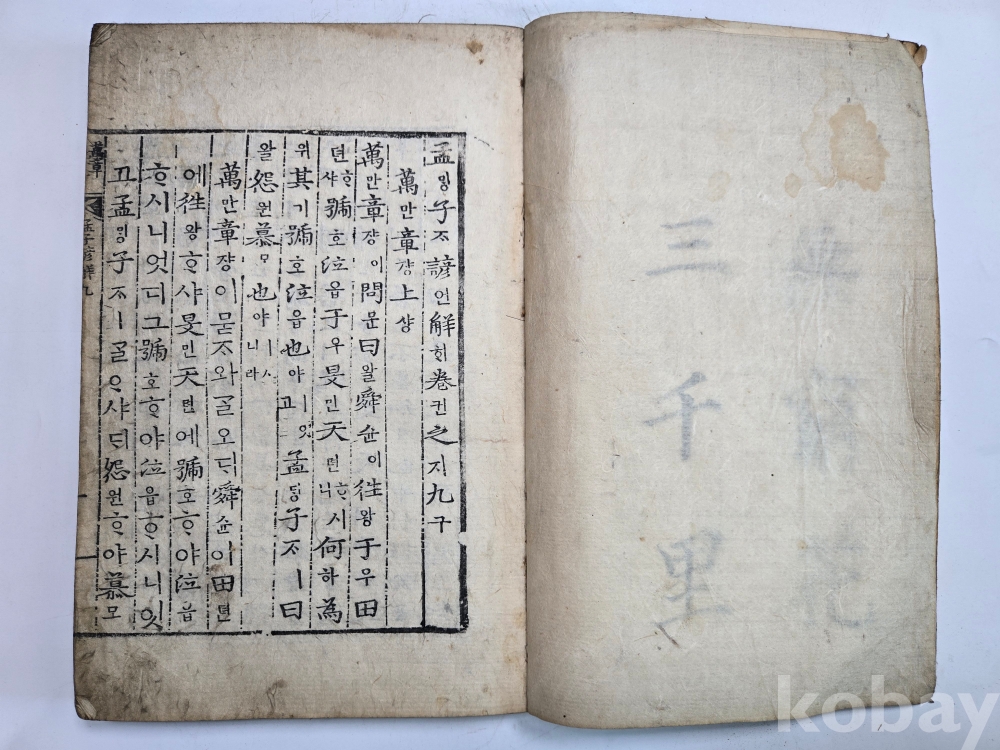 三千里
孟ᄆᆡᆼ子ᄌᆞ諺언解ᄒᆡ卷권之지九구
萬만章쟝上샹
萬만章쟝이問문曰왈舜슌이往왕于우田
뎐ᄒᆞ샤號호泣읍于우旻민天텬ᄒᆞ시니何하爲
위其기號호泣읍也야ㅣ잇고孟ᄆᆡᆼ子ᄌᆞㅣ曰
왈怨원慕모也야ㅣ시니라
萬만章쟝이묻ᄌᆞ와ᄀᆞᆯ오ᄃᆡ舜슌이田뎐
에往왕ᄒᆞ샤旻민天텬에號호ᄒᆞ야泣읍
ᄒᆞ시니엇디그號호ᄒᆞ야泣읍ᄒᆞ시니잇
고孟ᄆᆡᆼ子ᄌᆞㅣᄀᆞᆯᄋᆞ샤ᄃᆡ怨원ᄒᆞ야慕모
萬章 孟子諺解九
kobay